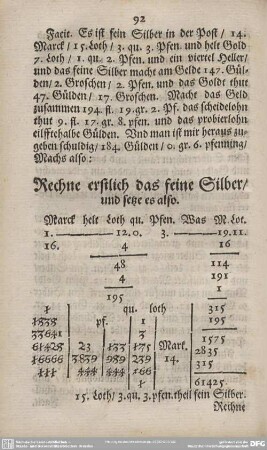 92
Facit. Es ist fein Silber in der Post / 14.
Marck / 15. Loth / 3. qu. 3. Pfen. und helt Gold
7. Loth / 1. qu. 2. Pfen. und ein viertel Heller /
und das feine Silber macht am Gelde 147. Gül-
den / 2. Groschen / 2. Pfen. und das Goldt thut
47. Gülden / 17. Groschen. Macht das Geld
zusammen 194. fl. 19. gr. 2. Pf. das scheidelohn
thut 9. fl. 17. gr. 8. pfen. und das probierlohn
eilffthalbe Gülden. Und man ist mir heraus zuge-
geben schuldig / 184. Gülden / 0. gr. 6. pfenning /
Machs also:
Rechne erstlich das feine Silber /
und setze es also.
Marck helt Loth qu. Pfen. Was M. Lot.
1. 12. 0. 3. 19. 11.
16. 4 16
48 114
4 191
195 1
qu. loth 315
pf. 195
1575
23 133 175 Mark. 2835
16666 3839 989 239 14. 315
444 444 166
61425
15. Loth / 3. qu. 3. pfen. theil fein Silber.
Rechne